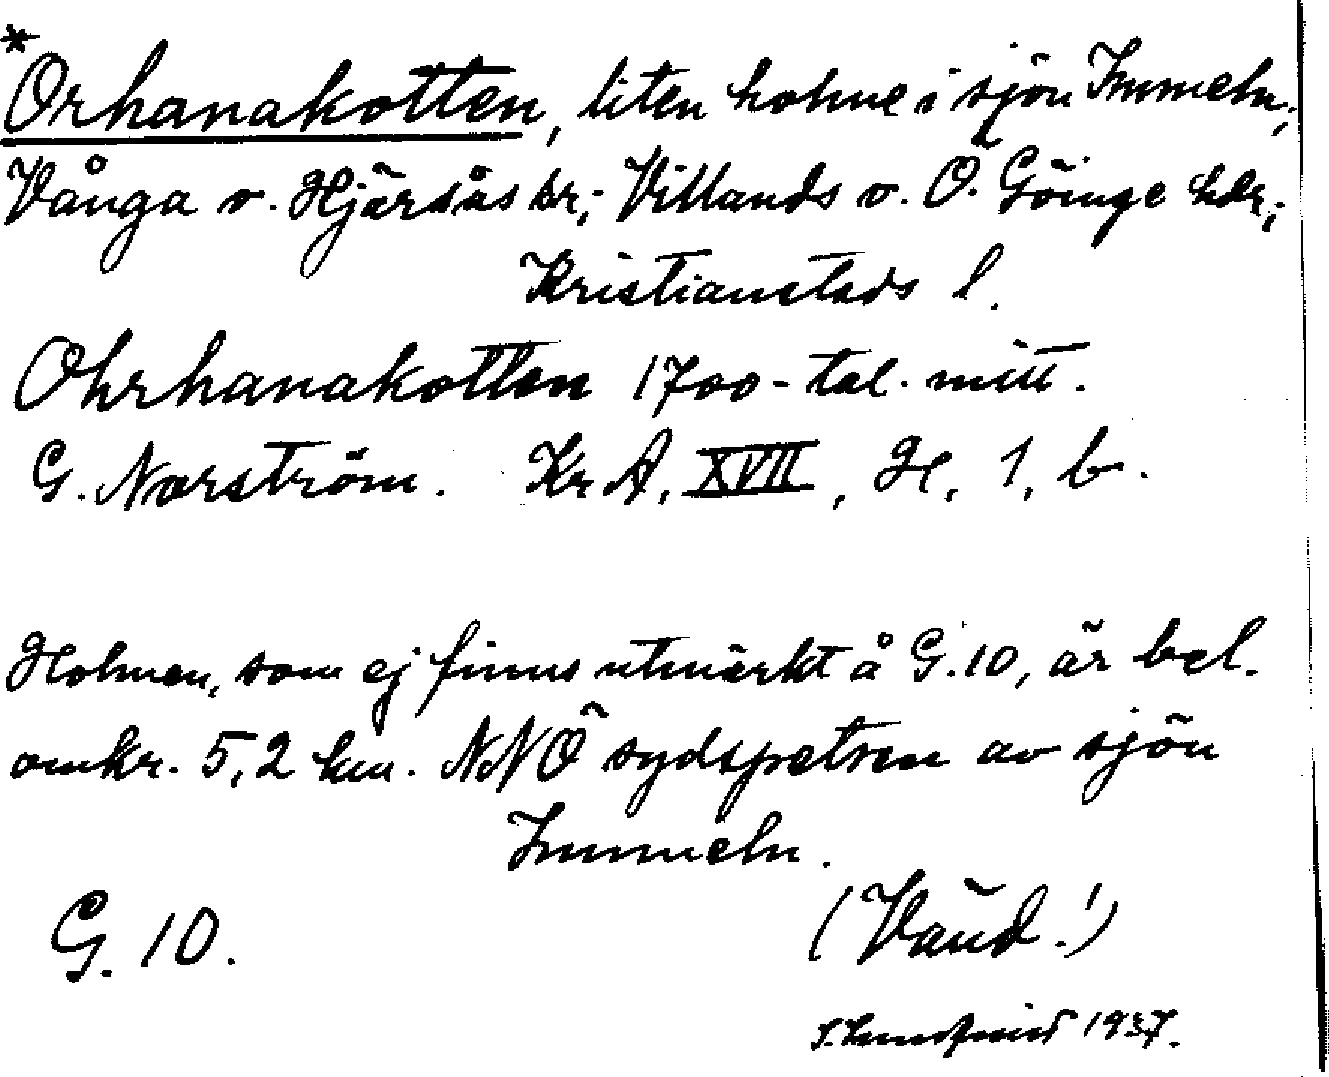 *Orhanakotten, liten holme i sjön Immeln;
Vånga o. Hjärsås snr; Villands o. Ö. Göinge hdr;
Kristianstads l.
Ohrhanakotten 1700-tal. mitt.
G. Norström. Kr A, XVII, H, 1, b.
Holmen, som ej finns utmärkt å G.10, är bel.
omkr. 5,2 km. NNÖ sydspetsen av sjön
Immeln.
G. 10.
(Vänd!)
1937.